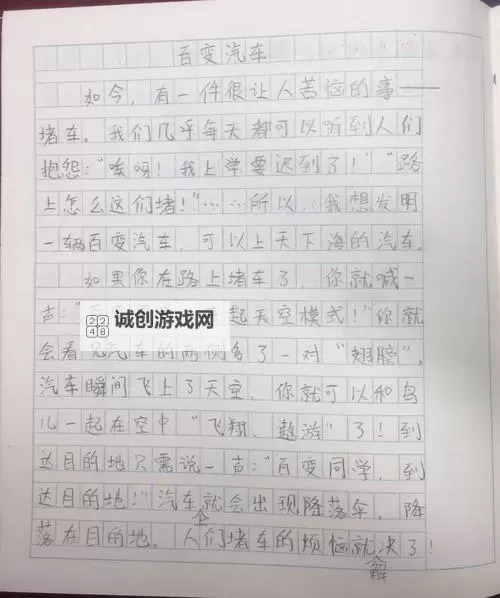 百变汽车
如今，有一件很让人苦恼的事——
堵车。我们几乎每天都可以听到人们
抱怨：“唉呀！我上学要迟到了！”“路
上怎么这们堵！”……所以，我想发明
一辆百变汽车，可以上天下海的汽车。
如果你在路上堵车了，你就喊一
声：“起天空模式！”你就
诚创游戏网
会看见汽车的两侧多了一对“翅膀”，
汽车瞬间飞上了天空，你就可以和鸟
儿一起在空中“飞翔、遨游”了！到
达目的地只需说一声：“百变同学，到
达目的地！”汽车就会出现降落伞，降
落在目的地。人们堵车的烦恼就解决了！